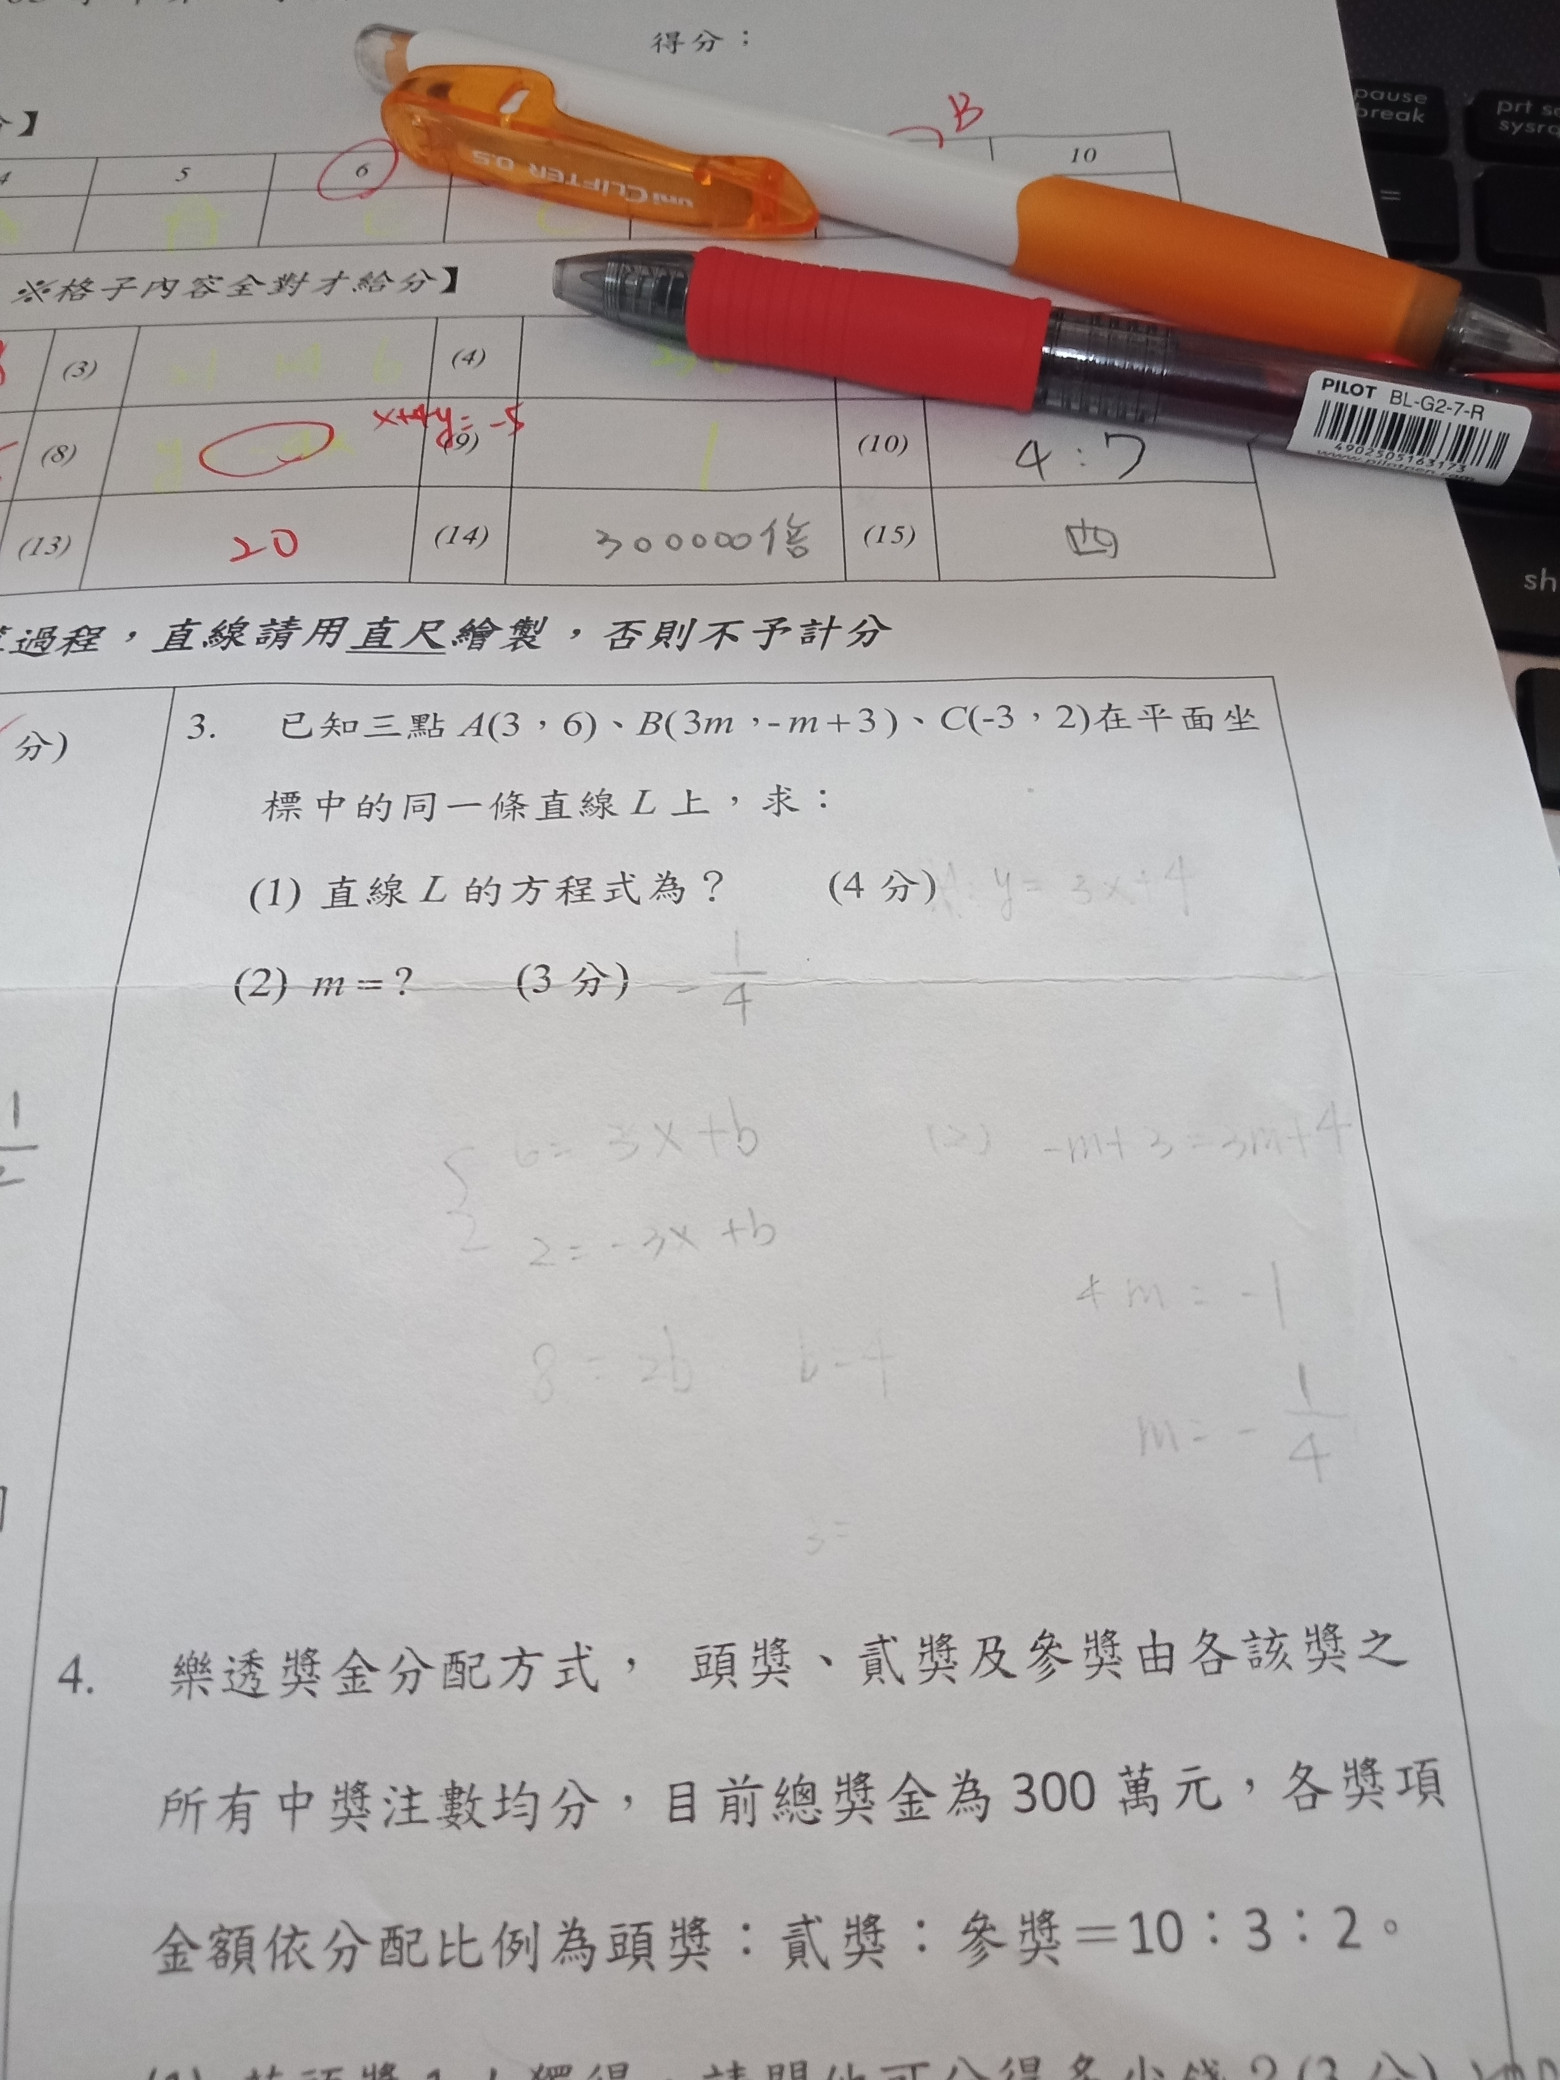 得分：
B
分】
4 5 6 10
uni CLIFTER 0.5
※格子內容全對才給分】
(3) (4)
PILOT BL-G2-7-R
4902505163173
x+4y=-5
(8) (9) 1 (10) 4:7
(13) 20 (14) 300000倍 (15) 四
過程，直線請用直尺繪製，否則不予計分
分)
3. 已知三點 A(3，6)、B(3m，-m+3)、C(-3，2)在平面坐
標中的同一條直線 L 上，求：
(1) 直線 L 的方程式為？ (4 分) y=3x+4
(2) m=？ (3 分) -1/4
1/2
6=3x+b
2=-3x+b
8=2b b=4
(2) -m+3=3m+4
4m=-1
m=-1/4
4. 樂透獎金分配方式， 頭獎、貳獎及參獎由各該獎之
所有中獎注數均分，目前總獎金為 300 萬元，各獎項
金額依分配比例為頭獎：貳獎：參獎＝10：3：2。
pause
break
prt sc
sysrq
=
sh